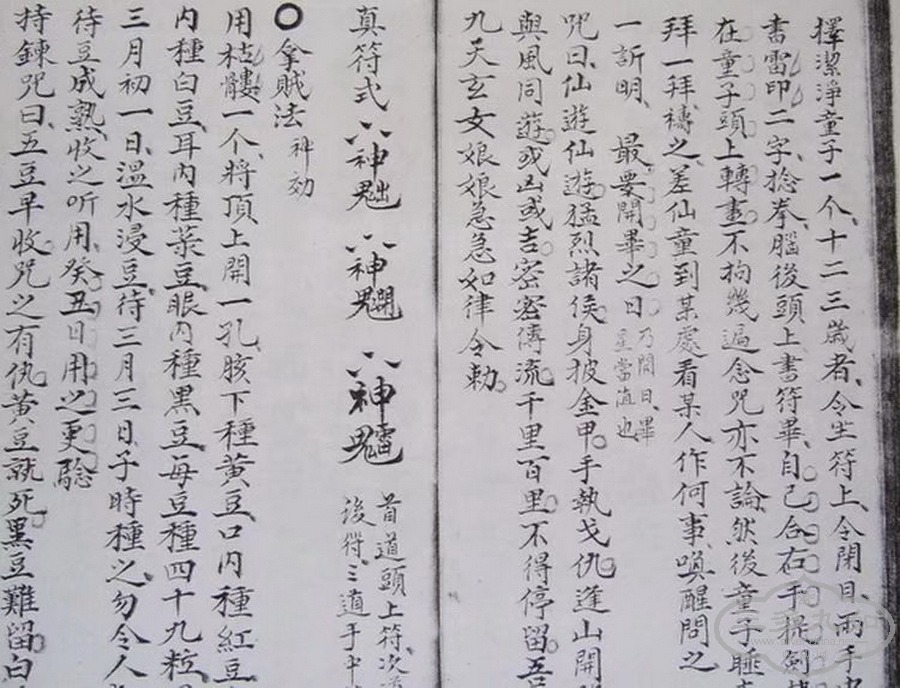 擇潔淨童子一个、十二三歲者、令坐符上、令閉目、兩手
書雷印二字、捻拳、腦後頭上書符畢、自己合右手提劍
在童子頭上轉畫不拘幾遍念咒亦不論、然後童子睡
拜一拜、禱之、差仙童到某處看某人作何事、喚醒問之
一訢明、 最要開畢之日 乃開日、畢星當直也
咒曰、仙遊仙遊、猛烈諸侯、身披金甲、手執戈仇、逢山開
與風同遊、或凶或吉、密密傳流、千里百里、不得停留、吾
九天玄女娘娘急急如律令勅、
真符式 八神 八神 八神 首道頭上符、次 後符三道手中
○拿賊法 神効
用枯髏一个、將頂上開一孔、胲下種黃豆口內種紅豆
內種白豆、耳內種菉豆、眼內種黑豆、每豆種四十九粒、
三月初一日、溫水浸豆、待三月三日、子時種之、勿令人
待豆成熟、收之听用、癸丑日用之更騐
持鍊咒曰、五豆早收、咒之有仇、黃豆就死、黑豆難留、白